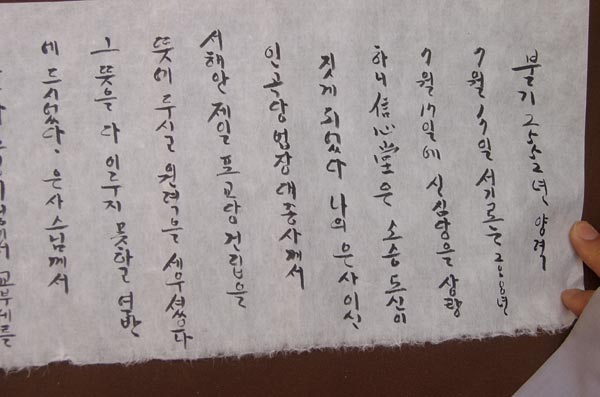 불기 2552년 양력
7월 17일 서기로는 2008년
7월 17일에 신심당을 상량
하니 信心堂은 소승 도신이
짓게 되었다 나의 은사이신
인곡당 법장대종사께서
서해안 제일 포교당 건립을
뜻에 두시고 원력을 세우셨다
그 뜻을 다 이루지 못하고 열반
에 드시었다. 은사스님께서